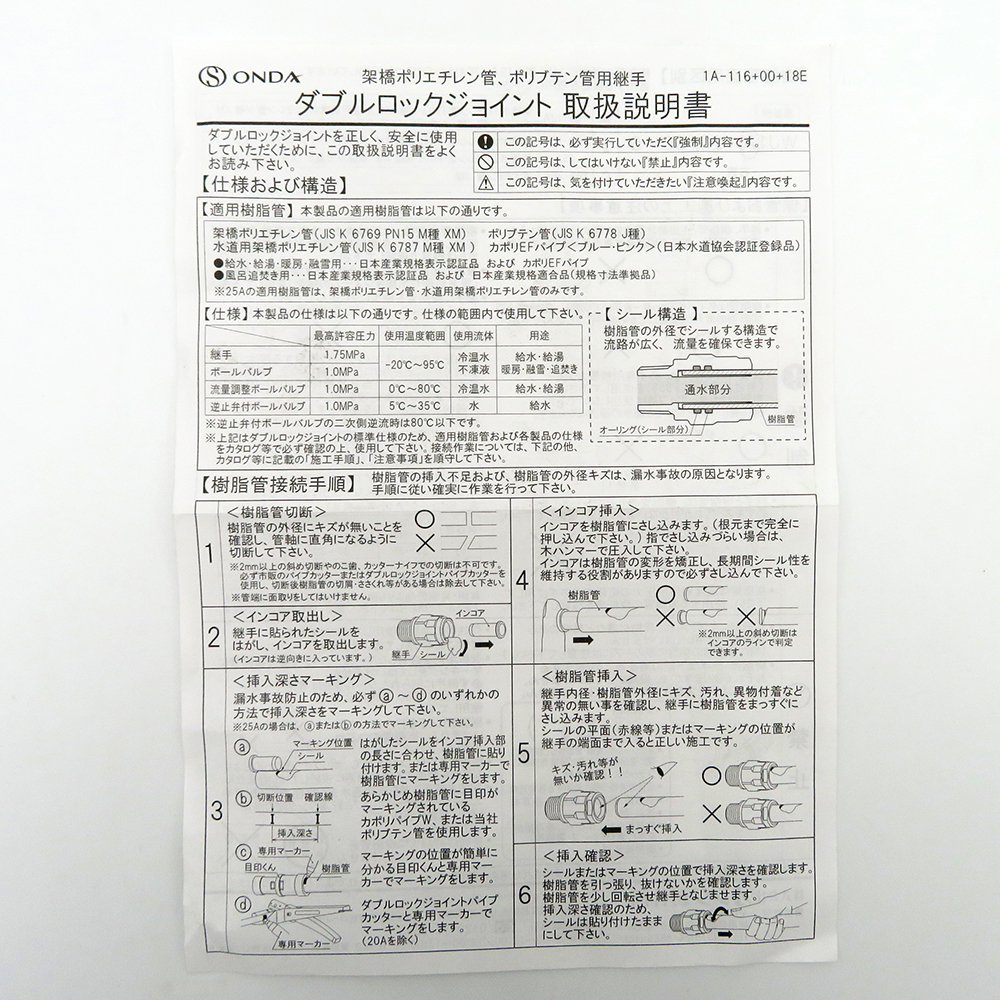 ONDA
架橋ポリエチレン管、ポリブテン管用継手
1A-116+00+18E
ダブルロックジョイント 取扱説明書
ダブルロックジョイントを正しく、安全に使用
していただくために、この取扱説明書をよく
お読み下さい。
この記号は、必ず実行していただく『強制』内容です。
この記号は、してはいけない『禁止』内容です。
この記号は、気を付けていただきたい『注意喚起』内容です。
【仕様および構造】
【適用樹脂管】本製品の適用樹脂管は以下の通りです。
架橋ポリエチレン管(JIS K 6769 PN15 M種 XM) ポリブテン管(JIS K 6778 J種)
水道用架橋ポリエチレン管(JIS K 6787 M種 XM ) カポリEFパイプ<ブルー・ピンク>(日本水道協会認証登録品)
●給水・給湯・暖房・融雪用・・・日本産業規格表示認証品 および カポリEFパイプ
●風呂追焚き用・・・日本産業規格表示認証品 および 日本産業規格適合品(規格寸法準拠品)
※25Aの適用樹脂管は、架橋ポリエチレン管・水道用架橋ポリエチレン管のみです。
【仕様】本製品の仕様は以下の通りです。仕様の範囲内で使用して下さい。
最高許容圧力 使用温度範囲 使用流体 用途
継手 1.75MPa -20℃~95℃ 冷温水 不凍液 給水・給湯 暖房・融雪・追焚き
ボールバルブ 1.0MPa
流量調整ボールバルブ 1.0MPa 0℃~80℃ 冷温水 給水・給湯
逆止弁付ボールバルブ 1.0MPa 5℃~35℃ 水 給水
※逆止弁付ボールバルブの二次側逆流時は80℃以下です。
※上記はダブルロックジョイントの標準仕様のため、適用樹脂管および各製品の仕様
をカタログ等で必ず確認の上、使用して下さい。接続作業については、下記の他、
カタログ等に記載の「施工手順」、「注意事項」を順守して下さい。
【シール構造】
樹脂管の外径でシールする構造で
流路が広く、流量を確保できます。
通水部分
樹脂管
オーリング(シール部分)
【樹脂管接続手順】
樹脂管の挿入不足および、樹脂管の外径キズは、漏水事故の原因となります。
手順に従い確実に作業を行って下さい。
1
<樹脂管切断>
樹脂管の外径にキズが無いことを
確認し、管軸に直角になるように
切断して下さい。
※2mm以上の斜め切断やのこ歯、カッターナイフでの切断は不可です。
必ず市販のパイプカッターまたはダブルロックジョイントパイプカッターを
使用し、切断後樹脂管の切屑・ささくれ等がある場合は除去して下さい。
※管端に面取りをしてはいけません。
2
<インコア取出し>
継手に貼られたシールを
はがし、インコアを取出します。
(インコアは逆向きに入っています。)
インコア
継手
シール
3
<挿入深さマーキング>
漏水事故防止のため、必ずⓐ~ⓓのいずれかの
方法で挿入深さをマーキングして下さい。
※25Aの場合は、ⓐまたはⓑの方法でマーキングして下さい。
ⓐ
マーキング位置
シール
はがしたシールをインコア挿入部
の長さに合わせ、樹脂管に貼り
付けます。または専用マーカーで
樹脂管にマーキングをします。
ⓑ
切断位置 確認線
挿入深さ
あらかじめ樹脂管に目印が
マーキングされている
カポリパイプW、または当社
ポリブテン管を使用します。
ⓒ
専用マーカー
目印くん
樹脂管
マーキングの位置が簡単に
分かる目印くんと専用マー
カーでマーキングをします。
ⓓ
専用マーカー
ダブルロックジョイントパイプ
カッターと専用マーカーで
マーキングをします。
(20Aを除く)
4
<インコア挿入>
インコアを樹脂管にさし込みます。(根元まで完全に
押し込んで下さい。)指でさし込みづらい場合は、
木ハンマーで圧入して下さい。
インコアは樹脂管の変形を矯正し、長期間シール性を
維持する役割がありますので必ずさし込んで下さい。
樹脂管
※2mm以上の斜め切断は
インコアのラインで判定
できます。
5
<樹脂管挿入>
継手内径・樹脂管外径にキズ、汚れ、異物付着など
異常の無い事を確認し、継手に樹脂管をまっすぐに
さし込みます。
シールの平面(赤線等)またはマーキングの位置が
継手の端面まで入ると正しい施工です。
キズ・汚れ等が
無いか確認!!
まっすぐ挿入
6
<挿入確認>
シールまたはマーキングの位置で挿入深さを確認します。
樹脂管を引っ張り、抜けないかを確認します。
樹脂管を少し回転させ継手となじませます。
挿入深さ確認のため、
シールは貼り付けたまま
にして下さい。